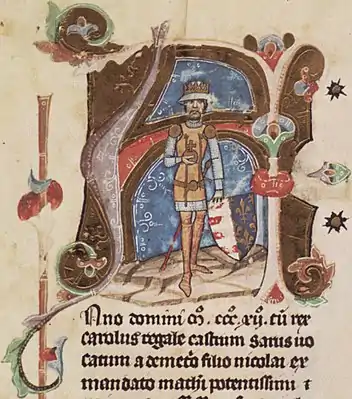 Anno domini mº. cccº. xijº. cū rex
carolus regale castrum sarus uo
catum a demetrio filio nicolai ex
mandato mathei potentissimi t